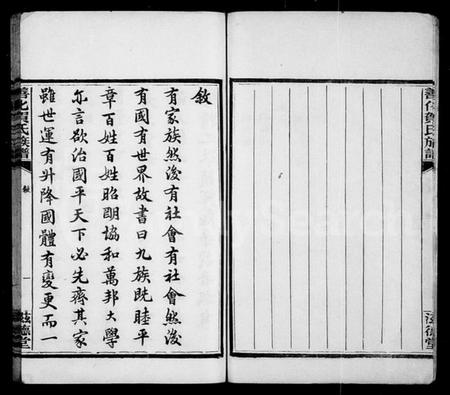 敘
有家族然後有社會有社會然後
有國有世界故書曰九族既睦平
章百姓百姓昭明協和萬邦大學
亦言欲治國平天下必先齊其家
雖世運有升降國體有變更而一
善化
氏族譜
敘
一
德堂